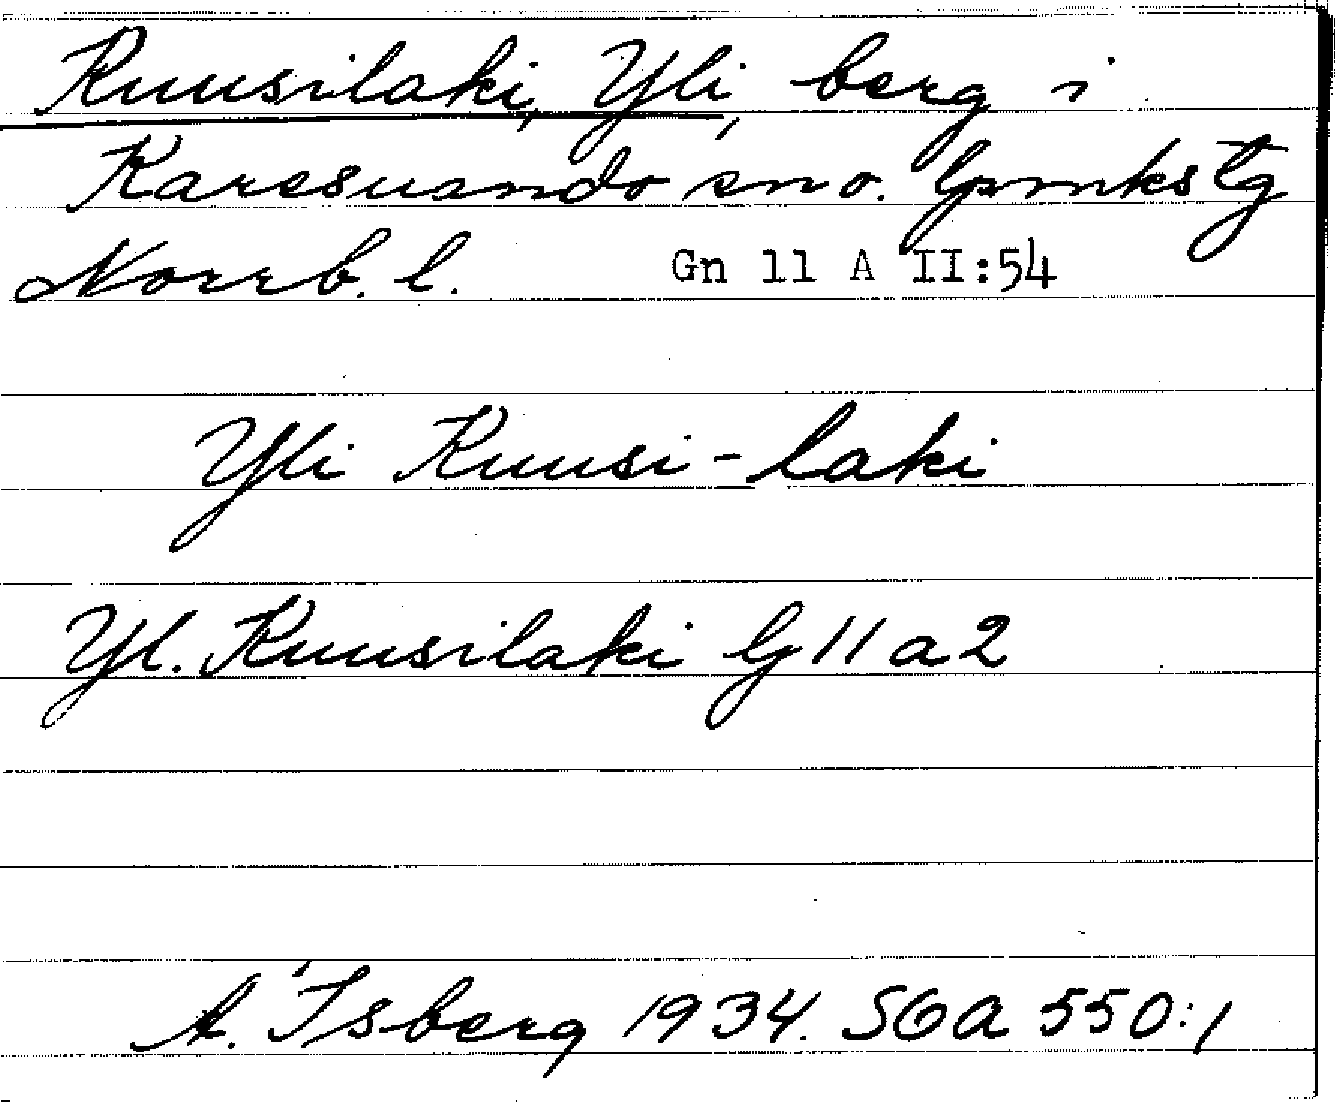 Kuusilaki, Yli, berg i
Karesuando sn o. lpmkstg
Norrb. l. Gn 11 A II:54
Yli Kuusi-laki
Yl. Kuusilaki G 11 a 2
A. Isberg 1934. SGA 550:1